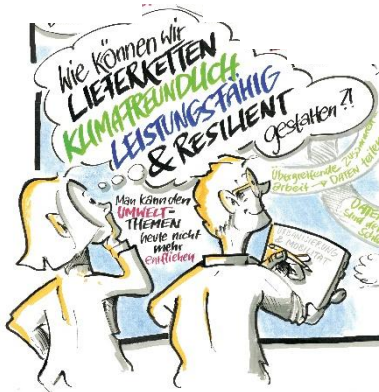 Wie können wir
LIEFERKETTEN
KLIMAFREUNDLICH
LEISTUNGSFÄHIG
& RESILIENT
gestalten?!
Man kann den
UMWELT-
THEMEN
heute nicht
mehr
entfliehen
Übergreifende Zusammen
arbeit → DATEN teilen
DATEN
sind der